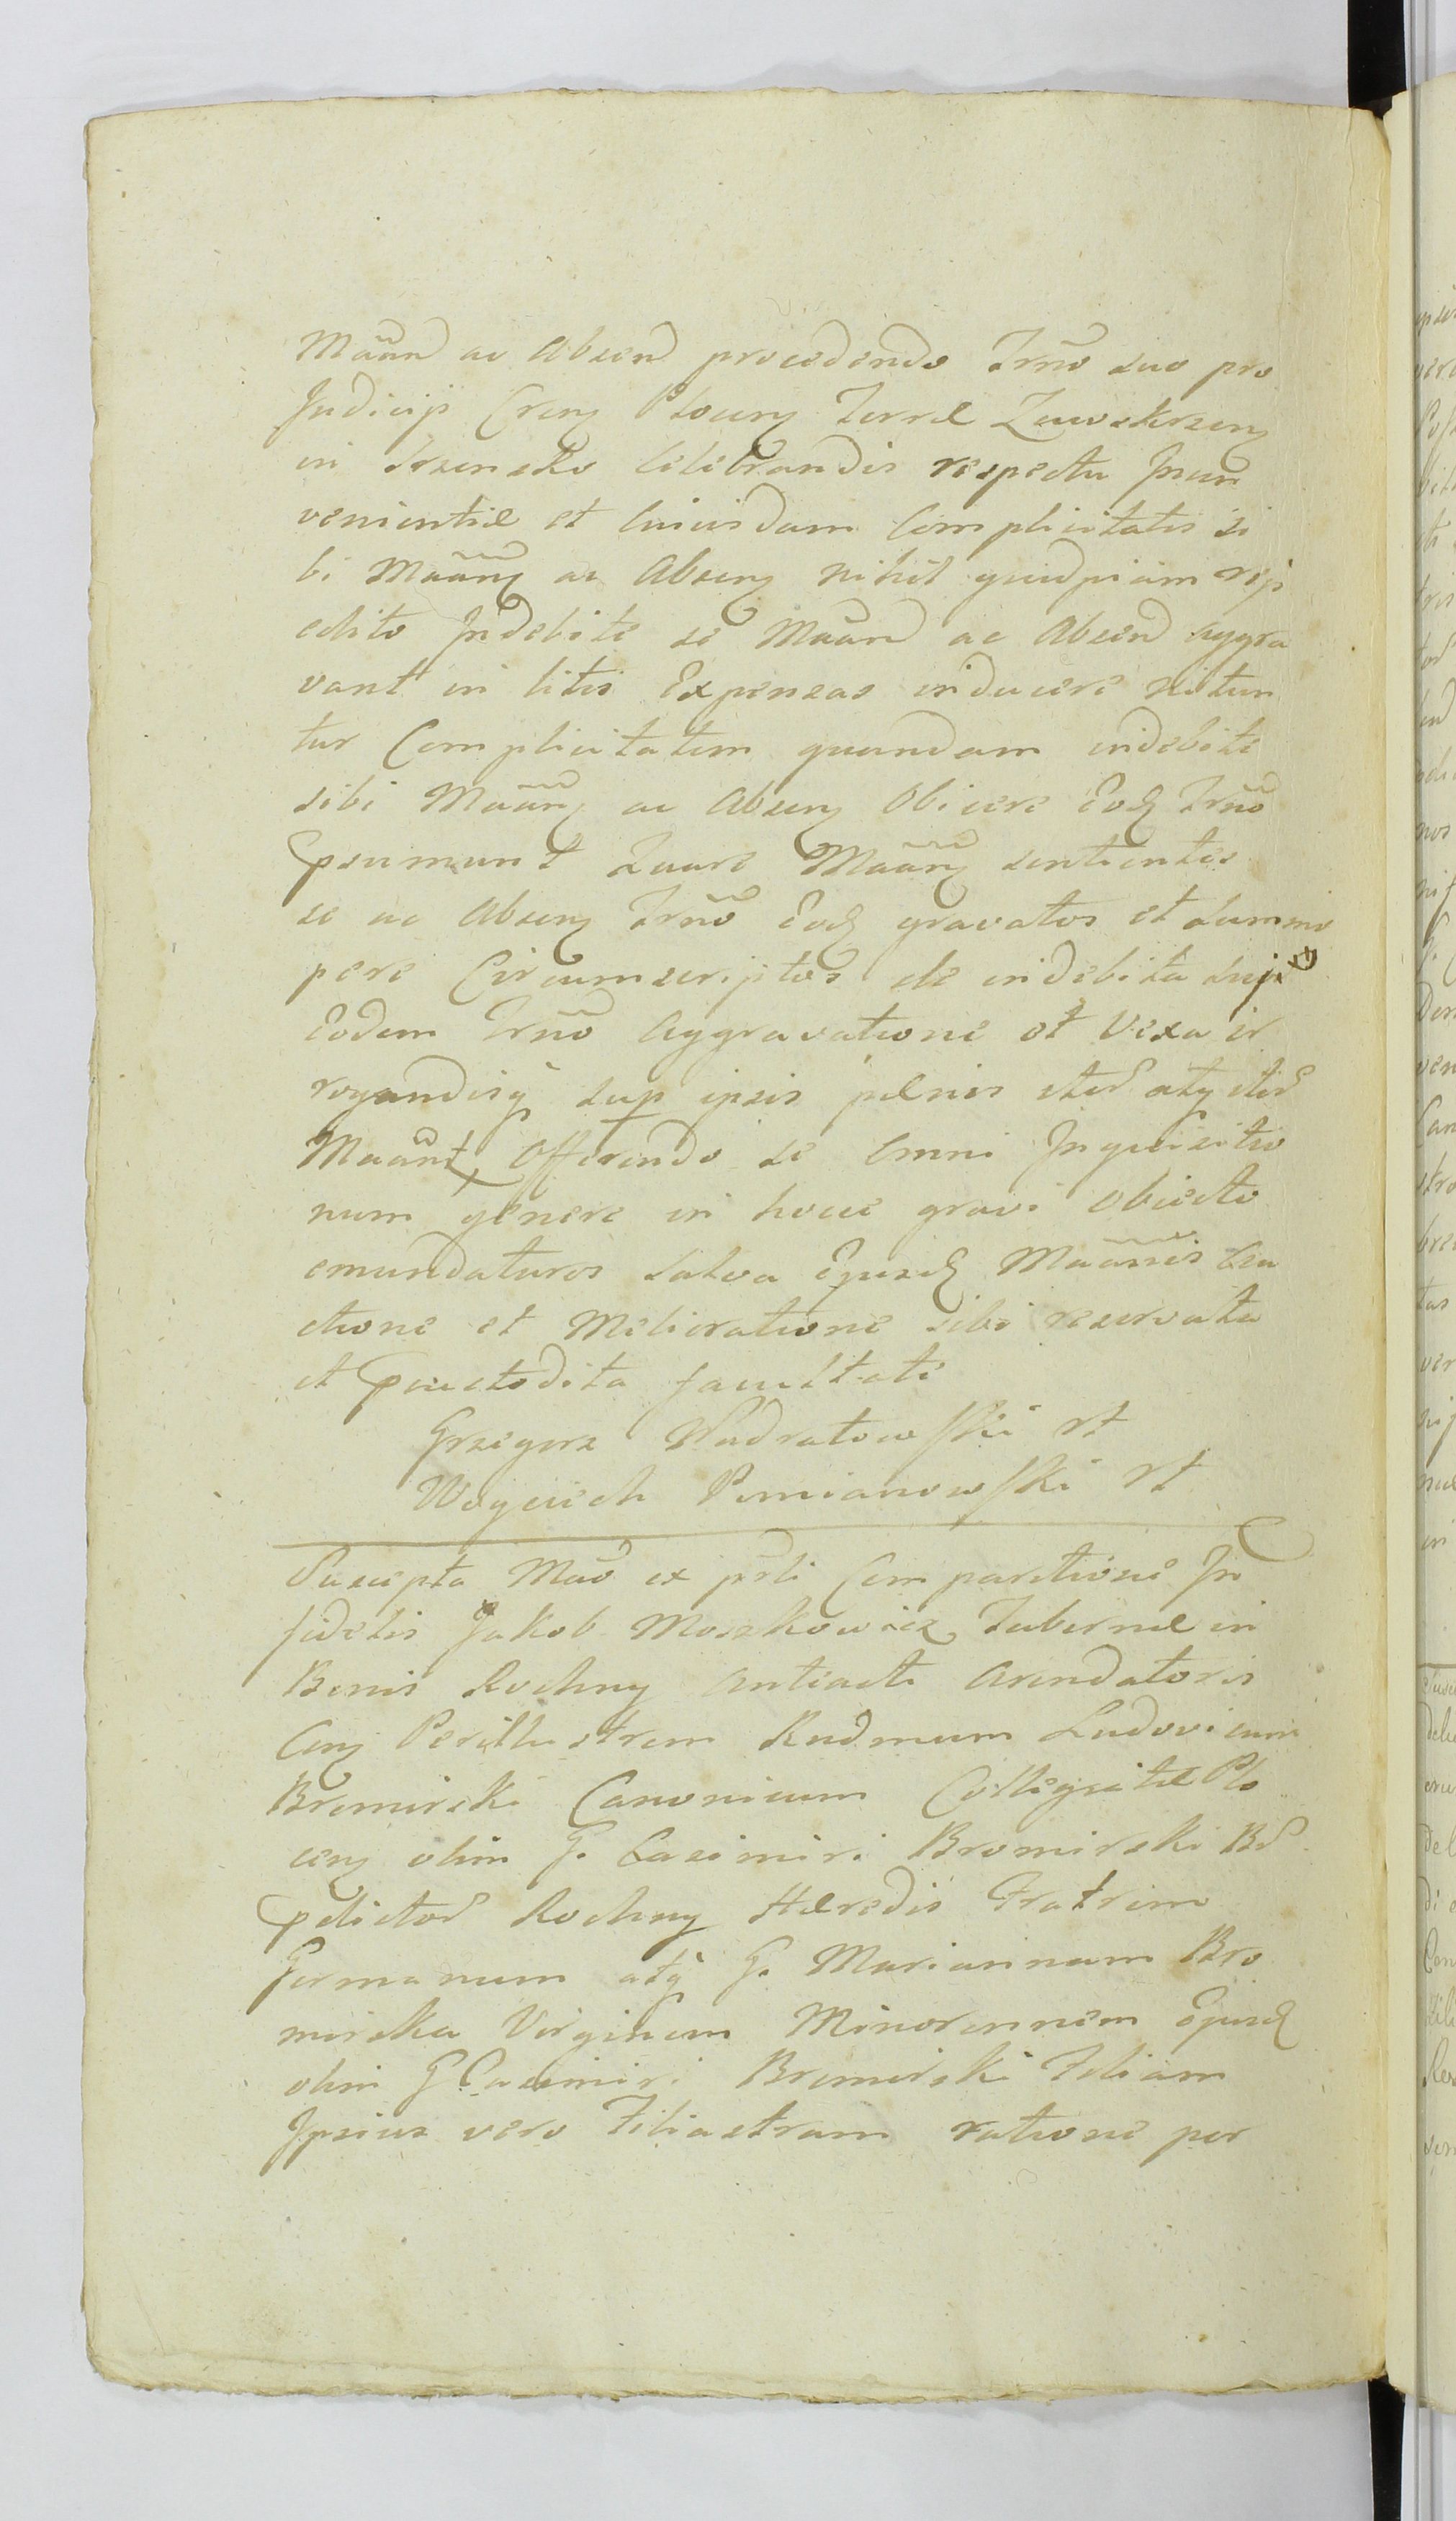 Mãand ac Absend procedendo Trño suo pro
Judicijs Creng Ploceng Terræ Zawoskrzeng
in Srzensko celebrandis respectu Incon
venientiæ et cuiusdam Complicitatis si
bi Mãang ac Abseng nihil quidpiam rei
edito Indebite se Mãand ac Absend aggra
vant in litis Expensas inducere nitun
tur Complicitatem quandam indebite
sibi Mãang ac Abseng Obiicere Eod Trño
Psumunt Quare Mãang sentientes
se ac Abseng Trño Eod gravatos et summo
pere Circumscriptos de indebita sui
Eodem Trño Aggravatione et Vexa ir
rogandisq sup ipsis pænis iter atq iter
Mãant Offerendo se Omni Inquisitio
num genere in hocce gravi Obiecto
emundaturos salva Ejusd Mãannis Cau
ctione et Melioratione sibi reservata
et Pcustodita facultate
Grzegorz Nadratowski rt
Woyciech Pomianowski rt
Suscepta Mão ex psti Comparitione In
fidelis Jakob Moszkowicz Tabernæ in
Bonis Rochny Antiacti Arendatoris
Cng Perillustrem Rudmum Ludovicum
Bromirski Canonicum Collegiatæ Plo
ceng olim G. Casimiri Bromirski Br
Pdictor Rochny Hæredis Fratrem
Germanum atq G. Mariannam Bro
mirska Virginem Minorennem Ejusd
olim G Casimiri Bromirski Filiam
Ipsius vero Filiastram ratione per